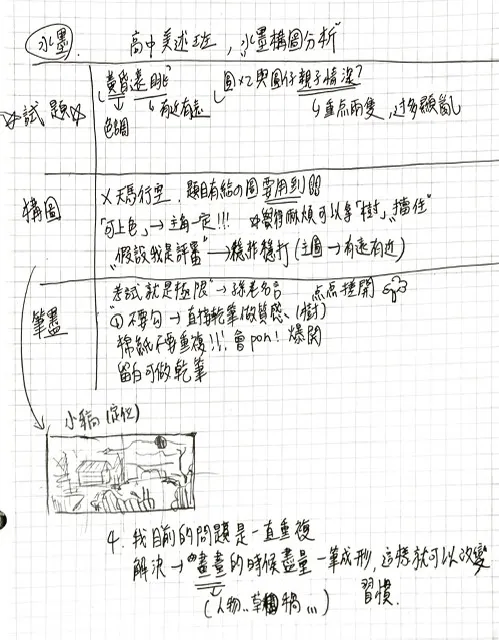 水墨. 高中美術班, "水墨構圖分析"
☆試題☆
"黃昏遠眺" 圓x2與圓仔親子情況?
↓ ↳有近有遠 ↳重点兩隻, 过多顯亂
色調
構圖
X天馬行空. 題目有給的圖要用到
「可上色」→主角一定!!! ☆覺得麻煩可以拿「樹」擋住
"假設我是評審" →穩紮穩打 (主圖→有遠有近)
筆墨
"考試就是極限" →孫老名言 点点撞開
① 不要勾→直接乾筆做質感、(樹)
棉紙不要重複!!! 會pon! 爆開
留白可做乾筆
小稿(定位)
4. 我目前的問題是一直重複
解決→畫畫的時候盡量一筆成形, 這樣就可以改變
(人物..草稿...) 習慣.